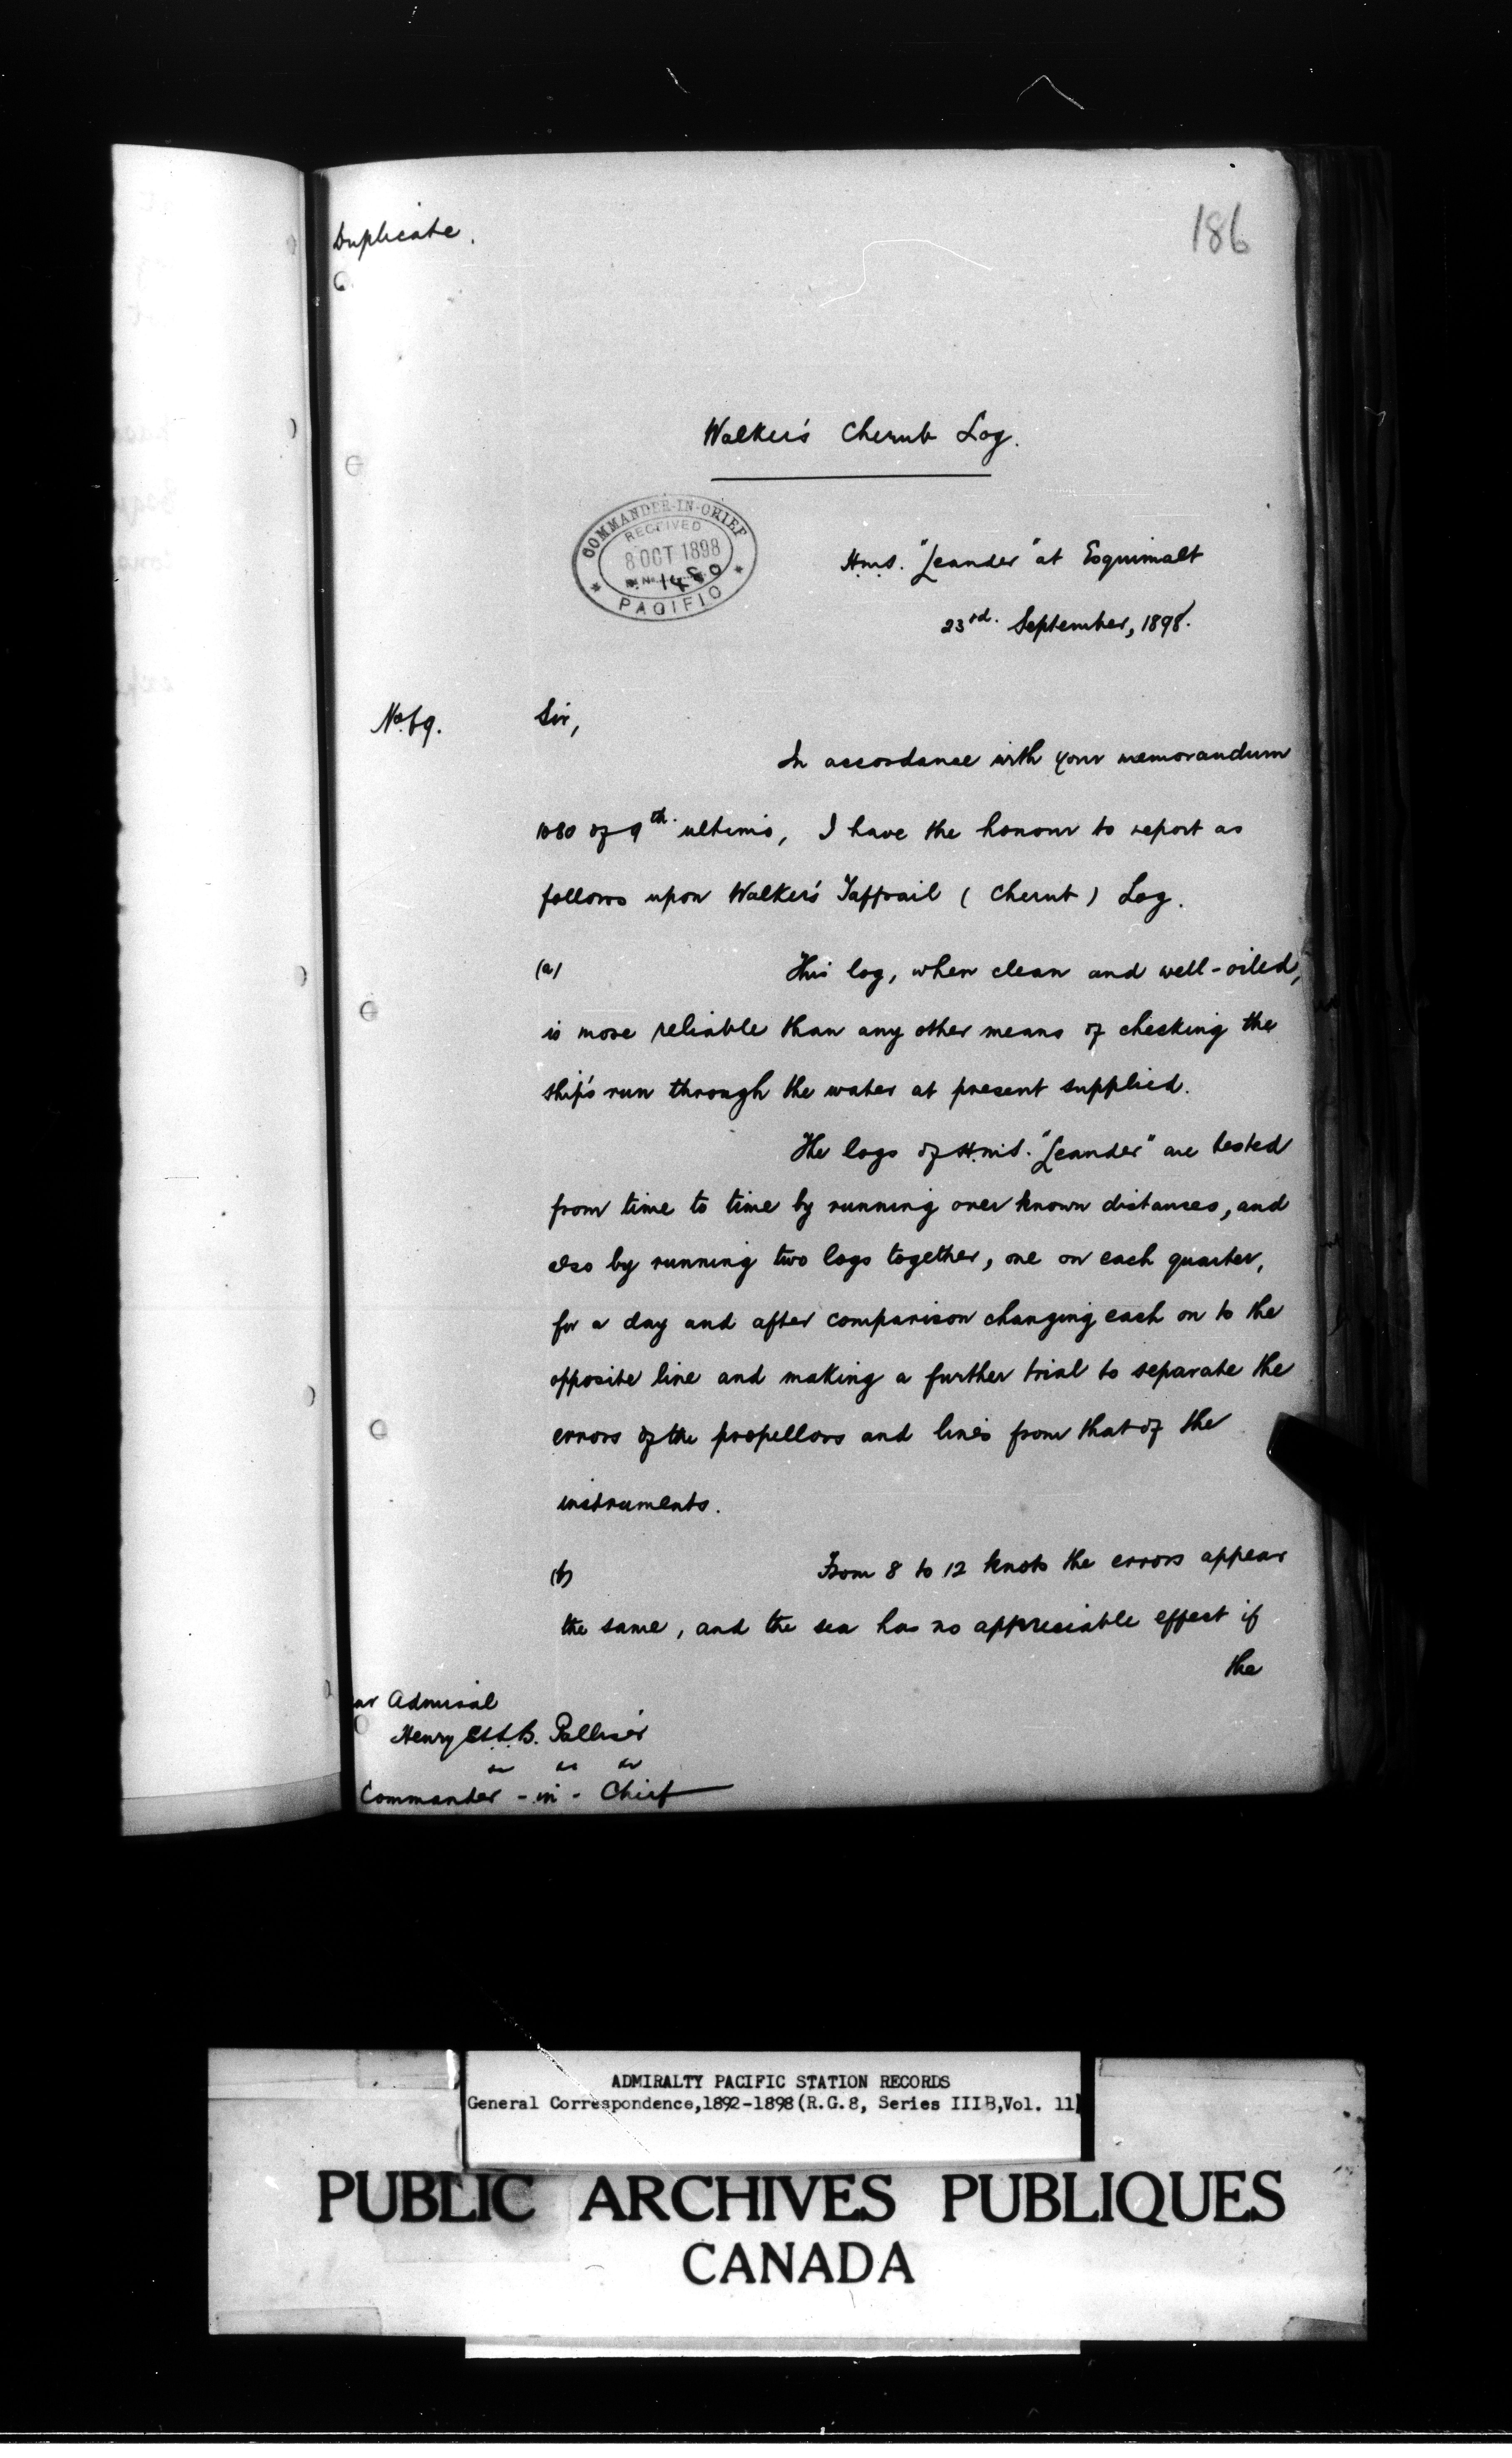 Duplicate.
186
Walker's Cherub Log.
COMMANDER-IN-CHIEF
RECEIVED
8 OCT 1898
PACIFIC
H.M.S. "Leander" at Esquimalt
23rd. September, 1898.
No. 69.
Sir,
In accordance with your memorandum
1080 of 9th. ultimo, I have the honour to report as
follows upon Walker's Taffrail (Cherub) Log.
(a) This log, when clean and well-oiled,
is more reliable than any other means of checking the
ship's run through the water at present supplied.
The logs of H.M.S. "Leander" are tested
from time to time by running over known distances, and
also by running two logs together, one on each quarter,
for a day and after comparison changing each on to the
opposite line and making a further trial to separate the
errors of the propellors and lines from that of the
instruments.
(b) From 8 to 12 knots the errors appear
the same, and the sea has no appreciable effect if
the
ar Admiral
Henry St. L. B. Palliser
Commander - in - Chief
ADMIRALTY PACIFIC STATION RECORDS
General Correspondence,1892-1898(R.G.8, Series IIIB,Vol. 11)
PUBLIC ARCHIVES PUBLIQUES
CANADA